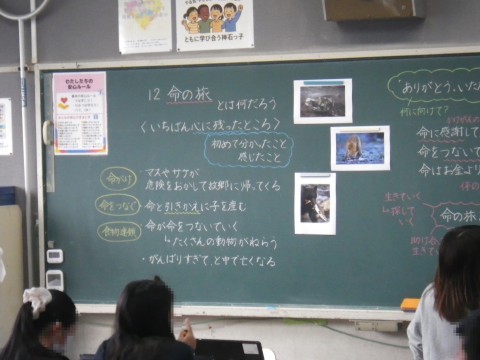 ともに学び合う神石っ子
わたしたちの
安心ルール
12 命の旅
とは何だろう
〈いちばん心に残ったところ〉
初めて分かったこと
感じたこと
命がけ
マスやサケが
危険をおかして故郷に帰ってくる
命をつなぐ
命と引きかえに子を産む
食物連鎖
命が命をつないでいく
↳たくさんの動物がねらう
・がんばりすぎて、と中で亡くなる
"ありがとう、いた
何に向けて?
命に感謝して
命をつないで
命はお金より
生きていく
命の旅
生きて